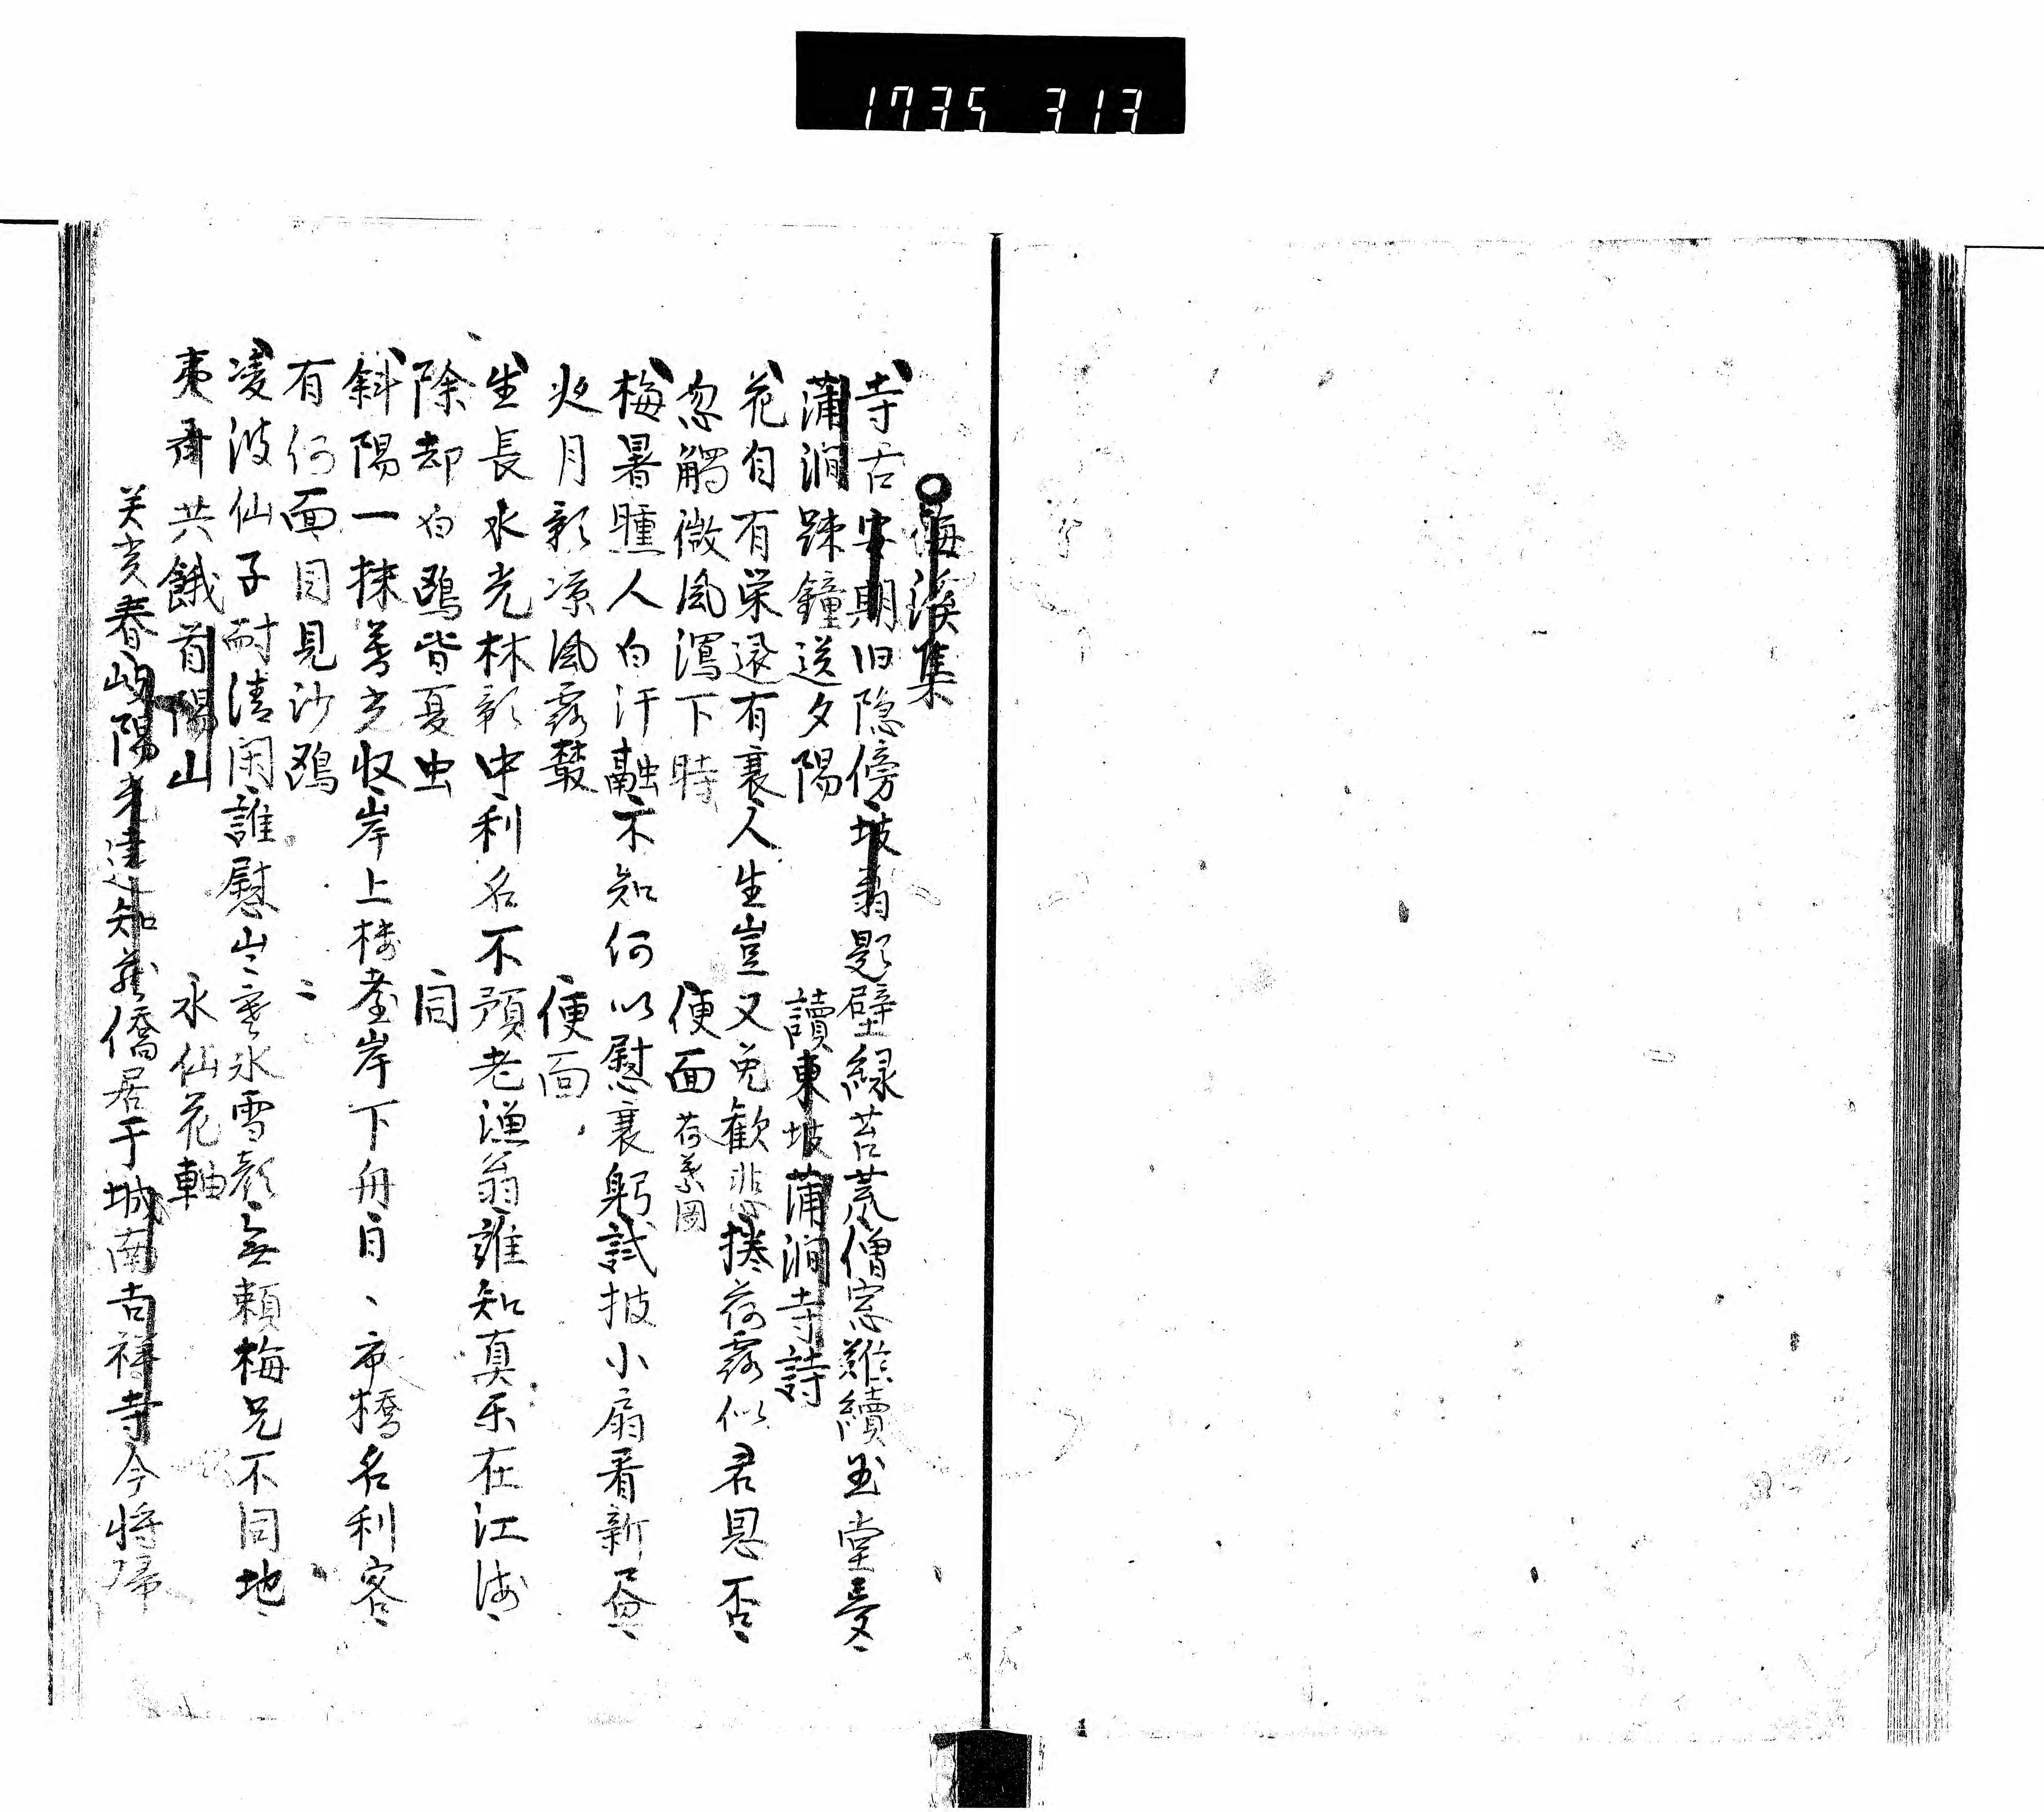 1735 313
梅溪集
寺古安期旧隠傍坡翁題壁緑苔荒僧窓難續玉堂夢
蒲澗踈鐘送夕陽 讀東坡蒲澗寺詩
花自有栄還有衰人生豈又免歓悲捲荷露似君恩否
忽觸微風瀉下時 便面 荷葉圖
梅暑瞳人白汗融不知何以慰衰躬試披小扇看新畳
火月彰凉風露鼕 便面
生長水光林影中利名不預老漁翁誰知真乐在江海
除却白鴎皆夏虫 同
斜陽一抹暮光収岸上楼䑓岸下舟日〻市橋名利客
有何面目見沙鴎 〻
凌波仙子耐清閑誰慰山〻寒氷雪顔無頼梅兄不同地
夷齊共餓首陽山 水仙花軸
癸亥春峋陽光達知蔵僑居于城南吉祥寺今将帰